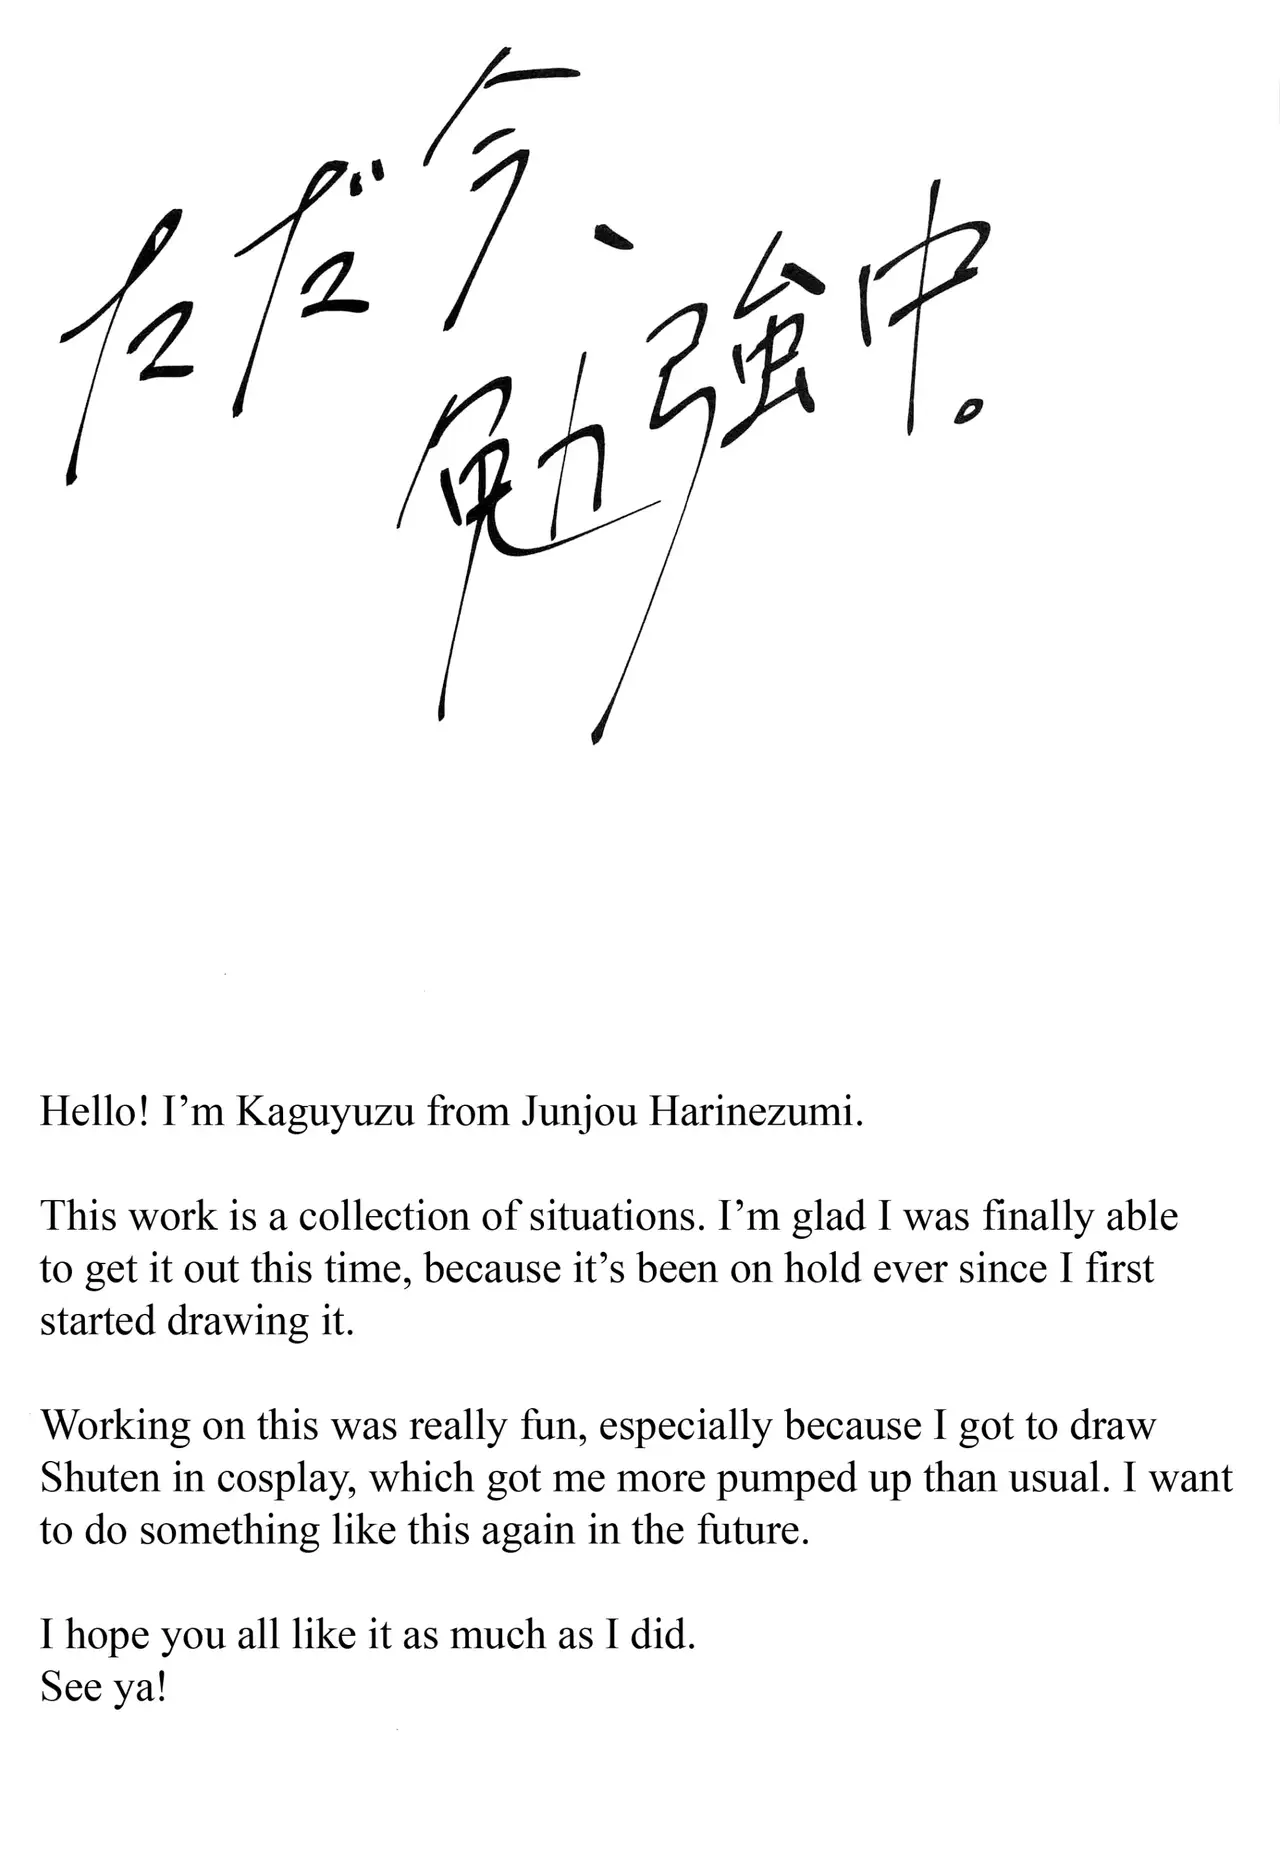 ただ今、
勉強中。
Hello! I’m Kaguyuzu from Junjou Harinezumi.
This work is a collection of situations. I’m glad I was finally able
to get it out this time, because it’s been on hold ever since I first
started drawing it.
Working on this was really fun, especially because I got to draw
Shuten in cosplay, which got me more pumped up than usual. I want
to do something like this again in the future.
I hope you all like it as much as I did.
See ya!